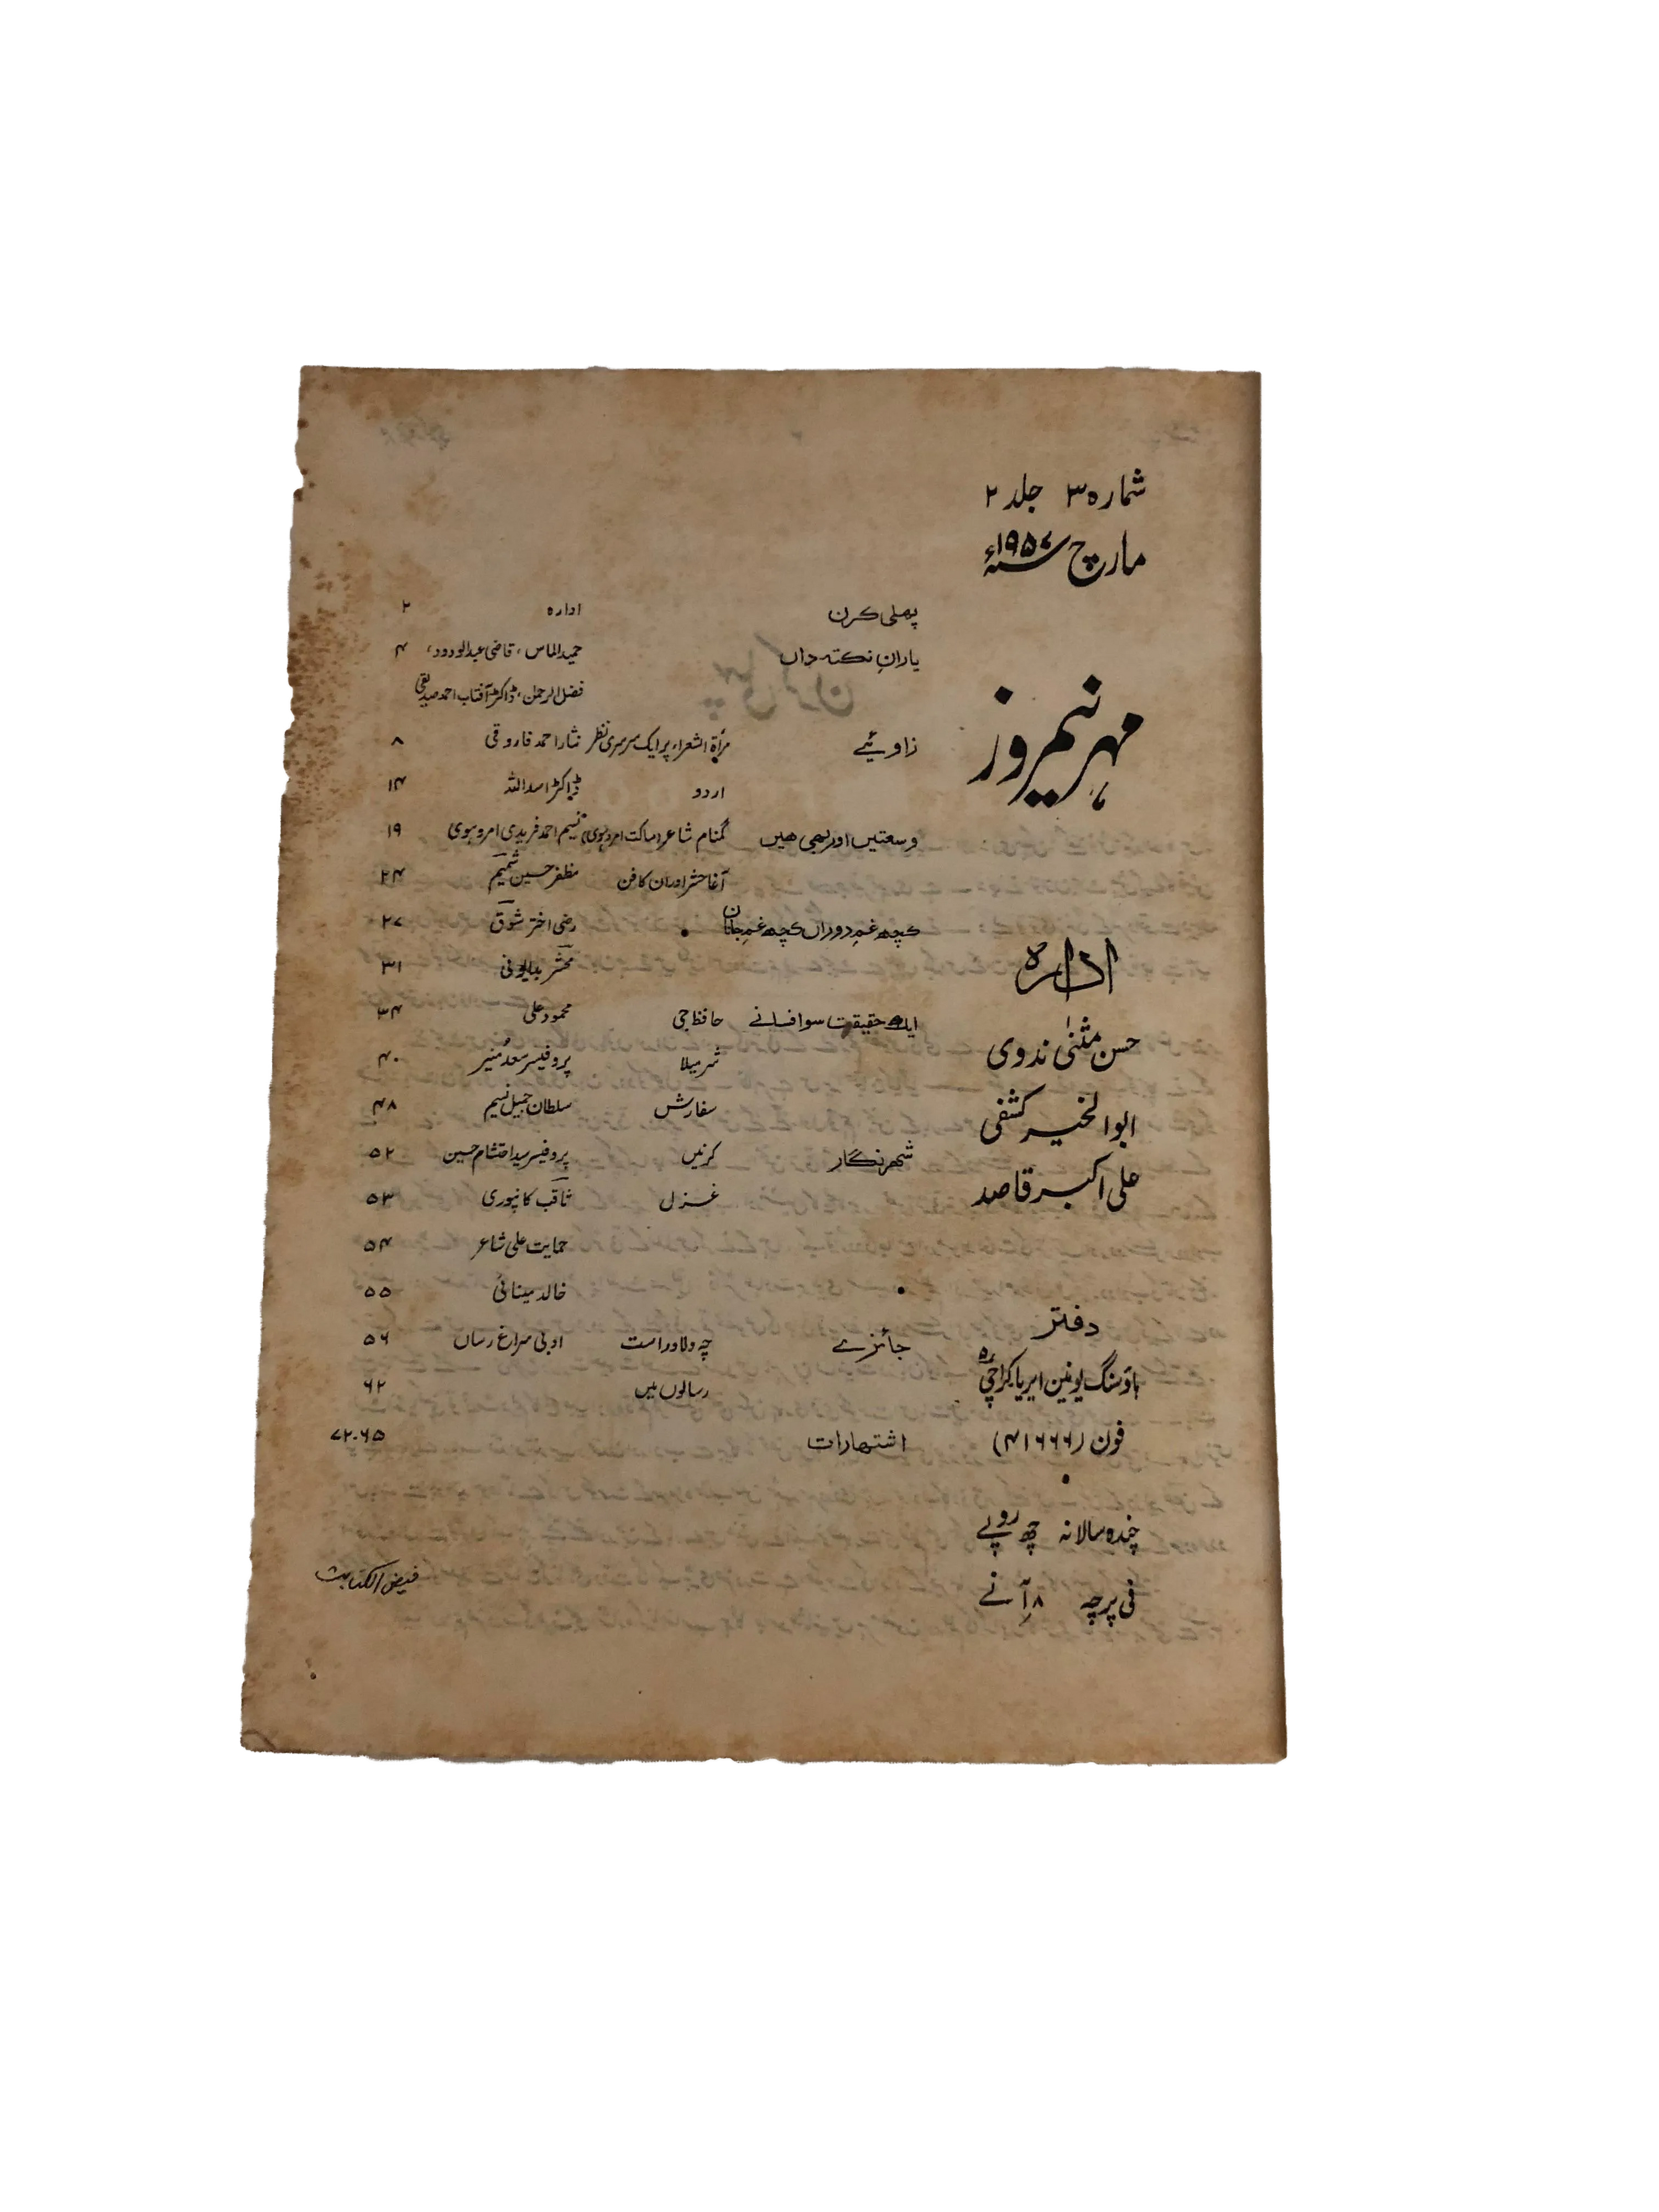 شمارہ ۳ جلد ۲
مارچ ۱۹۵۷ء
مہر نیمروز
ادارہ
حسن مثنیٰ ندوی
ابوالخیر کشفی
علی اکبر قاصد
دفتر
ہاؤسنگ یونین ایریا کراچی ۵
فون (۴۱۶۶۶)
چندہ سالانہ چھ روپے
فی پرچہ ۸ آنے
پہلی کرن ادارہ ۲
یارانِ نکتہ داں حمید الماس، قاضی عبدالودود، ۴
فضل الرحمن، ڈاکٹر آفتاب احمد صدیقی
زاویئے مرأۃ الشعراء پر ایک سرسری نظر نثار احمد فاروقی ۸
اردو ڈاکٹر اسد اللہ ۱۴
وسعتیں اور بھی ھیں گمنام شاعر (ساکت امروہوی) نسیم احمد فریدی امروہوی ۱۹
آغا حشر اور ان کا فن مظفر حسین شمیم ۲۴
کچھ غمِ دوراں کچھ غمِ جاناں رضی اختر شوق ۲۷
محشر بدایونی ۳۱
ایک حقیقت سو افسانے حافظ جی محمود علی ۳۴
شرمیلا پروفیسر سعد منیر ۴۰
سفارش سلطان جمیل نسیم ۴۸
شہر نگار کرنیں پروفیسر سید احتشام حسین ۵۲
غزل ثاقب کانپوری ۵۳
حمایت علی شاعر ۵۴
خالد مینائی ۵۵
جائزے چہ دلاور است ادبی سراغ رساں ۵۶
رسالوں میں ۶۲
اشتہارات ۶۵-۷۲
فیض الکتابت